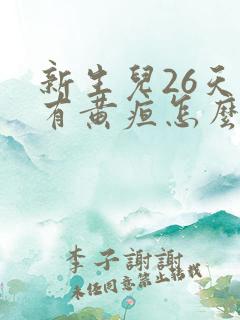 新生兒26天
有黃疸怎麼
李子謝謝
未任同意禁止轉載